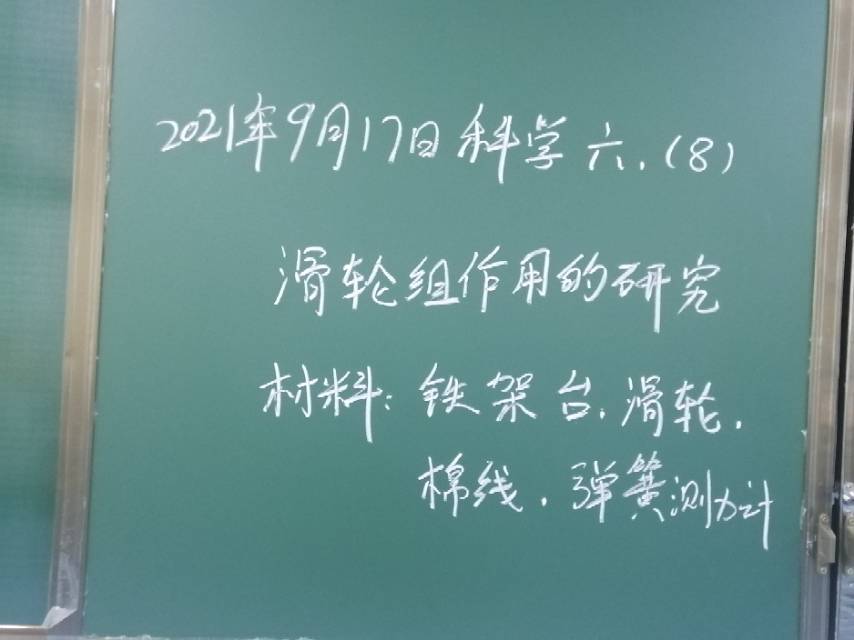 2021年9月17日 科学 六.(8)
滑轮组作用的研究
材料: 铁架台.滑轮.
棉线.弹簧测力计